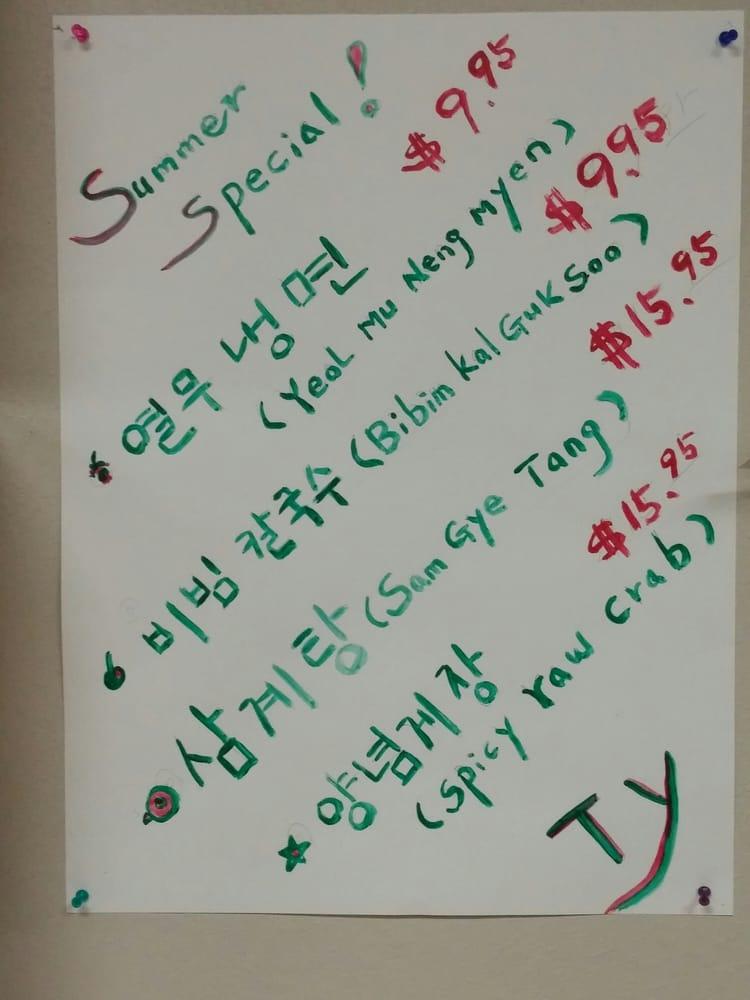 Summer
Special!
열무 냉면 $9.95
(Yeol Mu Neng Myen)
비빔 칼국수 (Bibim Kal Guk Soo) $9.95
삼계탕 (Sam Gye Tang) $15.95
양념게장 $15.95
(Spicy raw crab)
Ty